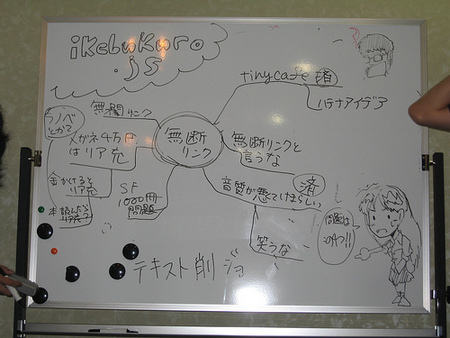 ikebukuro
.js
tinycafe 済
ハテナアイデア
無断
リンク
無断リンクと
言うな
音質が悪くてけはらしい
済
笑うな
無闇リンク
ラノベ
とかで
メガネ4万円
はリア充
金かけると
リア充
本読んだら
SF
1000冊
問題
テキスト削ジョ
問題は